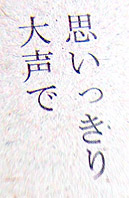 思いっきり
大声で